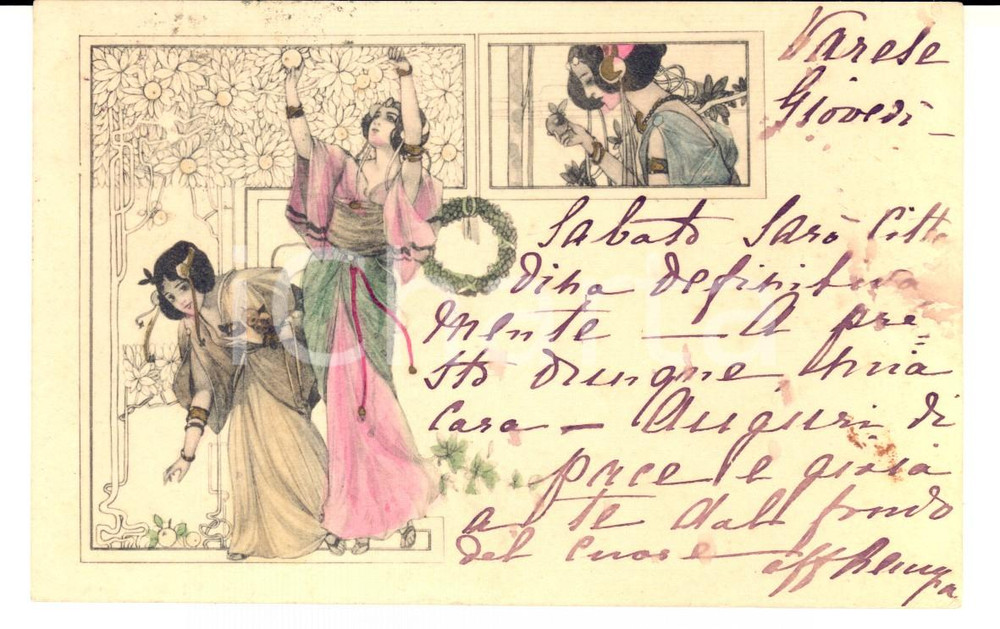 Varese
Giovedì –
Sabato Sarò Citta
dina definitiva
mente — A pre
sto dunque, mia
cara — Auguri di
pace e gioia
a te dal fondo
del cuore —
aff